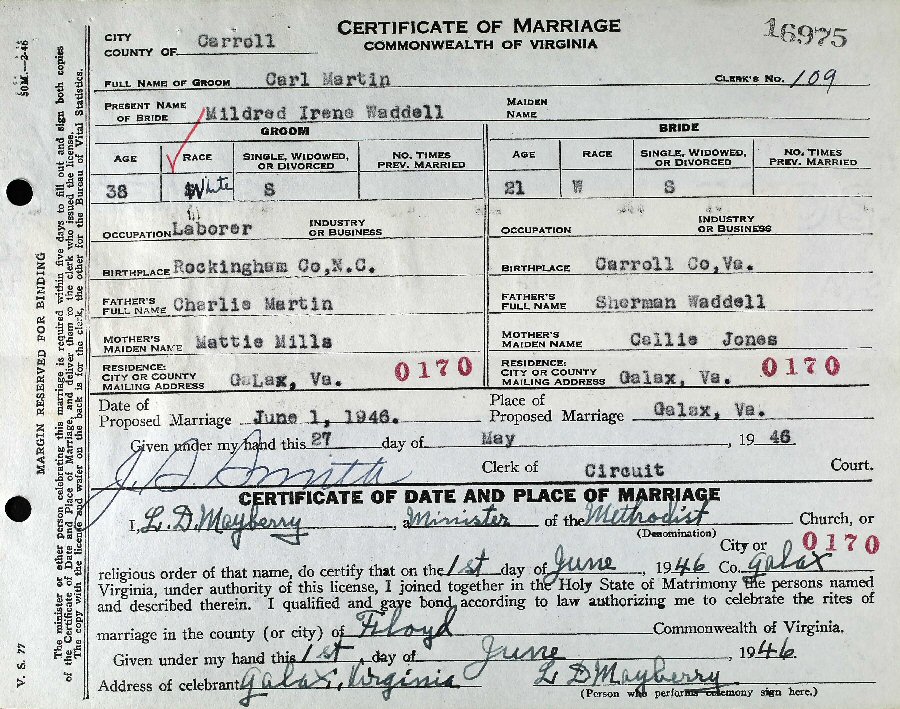 CERTIFICATE OF MARRIAGE
COMMONWEALTH OF VIRGINIA
16975
CITY
COUNTY OF Carroll
FULL NAME OF GROOM Carl Martin CLERK'S NO. 109
PRESENT NAME OF BRIDE Mildred Irene Waddell MAIDEN NAME
GROOM BRIDE
AGE RACE SINGLE, WIDOWED, OR DIVORCED NO. TIMES PREV. MARRIED AGE RACE SINGLE, WIDOWED, OR DIVORCED NO. TIMES PREV. MARRIED
38 White S 21 W S
OCCUPATION Laborer INDUSTRY OR BUSINESS OCCUPATION INDUSTRY OR BUSINESS
BIRTHPLACE Rockingham Co,N.C. BIRTHPLACE Carroll Co,Va.
FATHER'S FULL NAME Charlie Martin FATHER'S FULL NAME Sherman Waddell
MOTHER'S MAIDEN NAME Mattie Mills MOTHER'S MAIDEN NAME Callie Jones
RESIDENCE: CITY OR COUNTY MAILING ADDRESS GaLax, Va. 0170 RESIDENCE: CITY OR COUNTY MAILING ADDRESS Galax, Va. 0170
Date of Proposed Marriage June 1, 1946. Place of Proposed Marriage Galax, Va.
Given under my hand this 27 day of May, 1946
J. B. Smith Clerk of Circuit Court.
CERTIFICATE OF DATE AND PLACE OF MARRIAGE
I, L. D. Mayberry, a Minister of the Methodist Church, or
(Denomination)
City or 0170
religious order of that name, do certify that on the 1st day of June, 1946 Co. Galax
Virginia, under authority of this license, I joined together in the Holy State of Matrimony the persons named
and described therein. I qualified and gave bond according to law authorizing me to celebrate the rites of
marriage in the county (or city) of Floyd Commonwealth of Virginia.
Given under my hand this 1st day of June, 1946.
Address of celebrant Galax, Virginia L D Mayberry
(Person who performs ceremony sign here.)
50M.—2-46
MARGIN RESERVED FOR BINDING
V. S. 77
The minister or other person celebrating this marriage is required within five days to fill out and sign both copies
of the Certificate of Date and Place of Marriage, and deliver them to the clerk who issued the license.
The copy with the license and wafer on the back is for the clerk, the other for the Bureau of Vital Statistics.